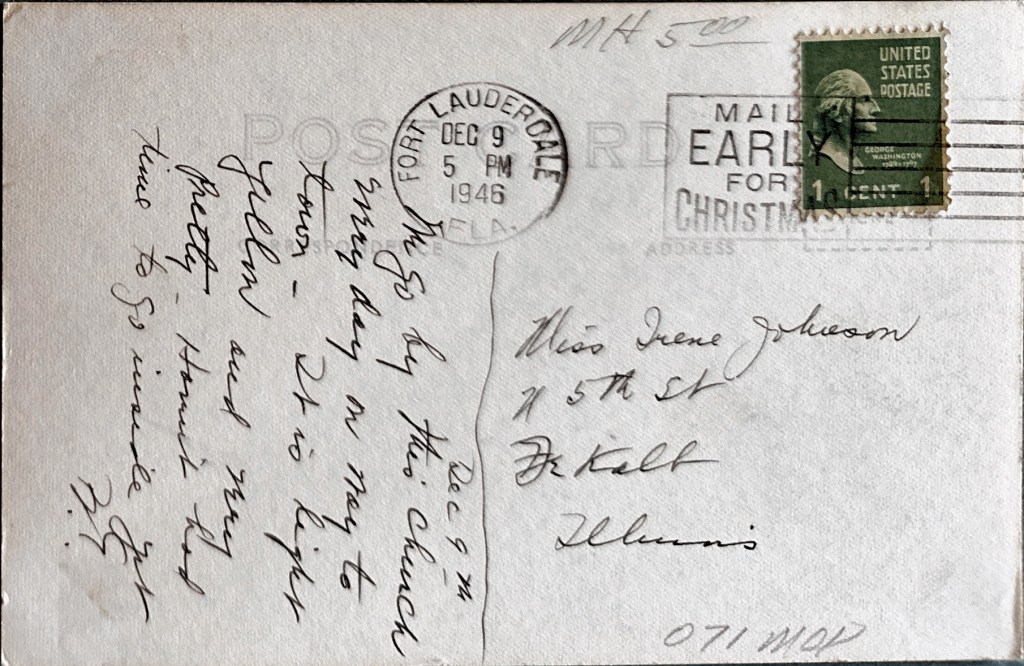 MH 5 00
UNITED
STATES
POSTAGE
GEORGE
WASHINGTON
1789-1797
1 CENT 1
FORT LAUDERDALE
DEC 9
5 PM
1946
FLA.
MAIL
EARLY
FOR
CHRISTMAS
POST CARD
CORRESPONDENCE
ADDRESS
Dec 9th
We go by this church
every day on way to
town – It is light
yellow and very
Pretty – Havent had
time to go inside yet
Miss Irene Johnson
N 5th St
De Kalb
Illinois
071 MOP